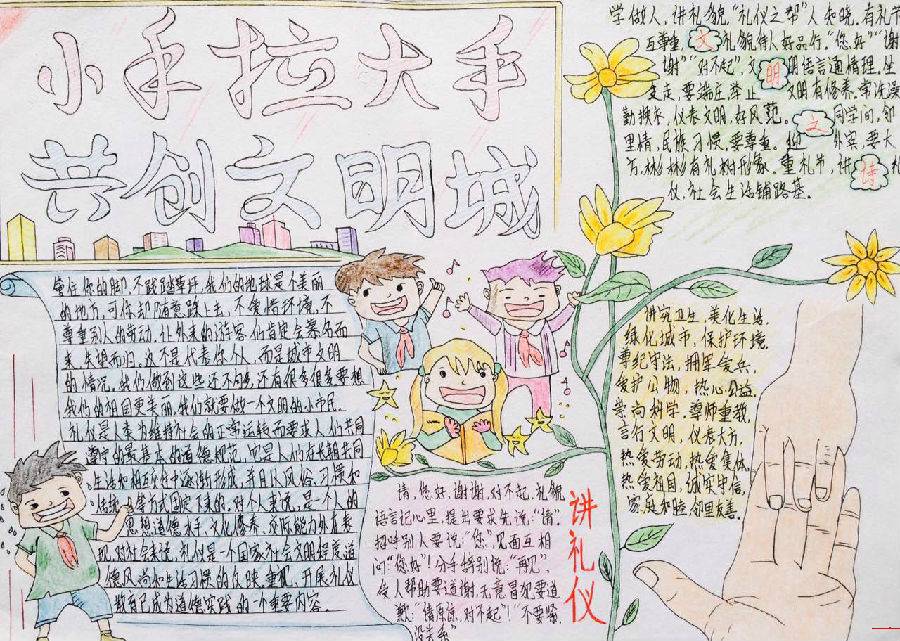 小手拉大手
共创文明城
学做人，讲礼貌，"礼仪之帮"人知晓，有礼节
互尊重，礼貌待人好品行。"您好""谢
谢""对不起"，文明语言通情理。坐
文明有修养，常洗澡
勤换衣，仪表文明，好风范。同学间，邻
里情，民族习惯，要尊重。外宾，要大
方，彬彬有礼树形象。重礼节，讲礼
仪，社会生活铺路基。
文
明
之
诗
管住你的脚，不践踏草坪，我们的地球是个美丽
的地方，可你却随意踩上去，不爱惜环境，不
尊重别人的劳动，让外来的游客，他们肯定会慕名而
来，失望而归，这不是代表你个人，而是城市文明
的情况。给们做到这些还不够，还有很多很多要想
我们的祖国更美丽，我们就要做一个文明的小市民。
礼仪是人类为维持社会的正常运转而要求人们共同
遵守的最基本的道德规范，它是人们在长期共同
生活和相互交往中逐渐形成，并且以风俗、习惯和
传统等方式固定下来的，对个人来说，是一个人的
思想道德水平、文化修养、交际能力外在表
现，对社会来说，礼仪是一个国家社会文明程度道
德风尚和生活习惯的反映，重视、开展礼仪
教育已成为道德实践的一个重要内容。
请，您好，谢谢，对不起，礼貌
语言记心里，提出要求先说："请"
招呼别人要说："您"，见面互相
问"您好"！分手特别说："再见"，
受人帮助要道谢，无意冒犯要道
歉："请原谅，对不起"！"不要紧，
没关系"
讲礼仪
讲究卫生，美化生活，
绿化城市，保护环境，
尊纪守法，拥军爱兵，
爱护公物，热心公益，
崇尚科学，尊师重教，
言行文明，仪表大方，
热爱劳动，热爱集体，
热爱祖国，诚实守信，
家庭和睦，邻里友善。